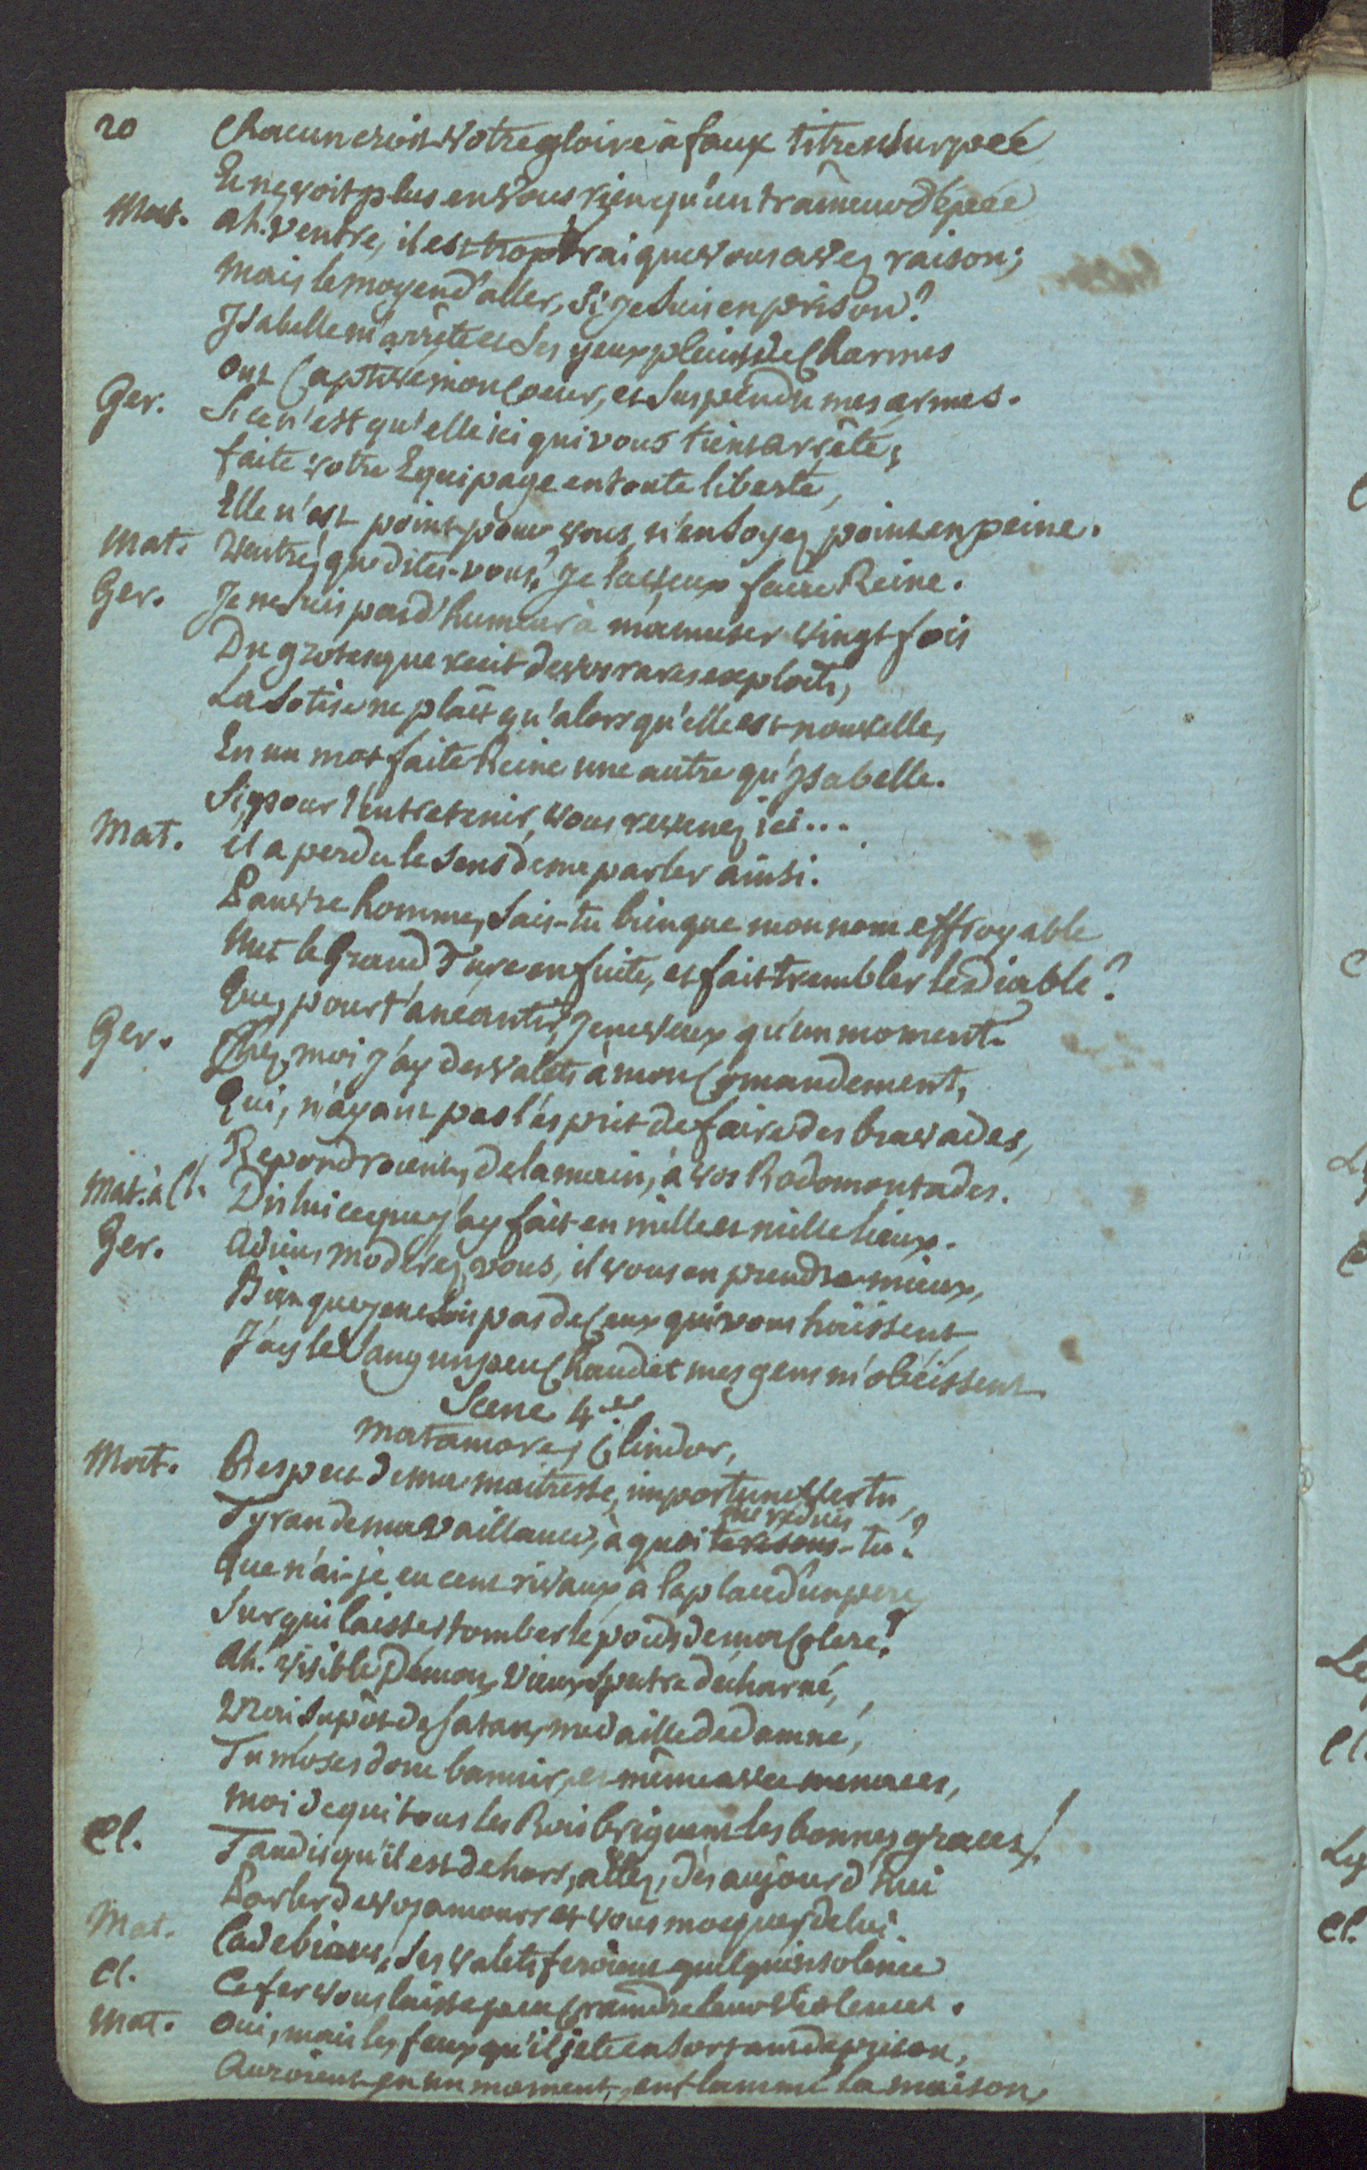 20 Chacun croit votre gloire à faux titre usurpée
Et ne voit plus en vous rien qu'un traîneur d'épée
Mat. ah. ventre, il est trop vrai que vous avez raison;
mais le moyen d'aller, si je suis en prison?
Isabelle m'arrête et ses yeux pleins de charmes
ont captivé mon coeur, et suspendu mes armes.
Ger. Si ce n'est qu'elle ici qui vous tient arrêté,
faite votre Equipage en toute liberté,
Elle n'est point pour vous, n'en soyez point en peine.
Mat. Ventre, que dites-vous? je la veux faire Reine.
Ger. Je ne suis pas d'humeur à m'amuser vingt fois
Du grotesque recit de vos rares exploits,
La sotise ne plait qu'alors qu'elle est nouvelle,
En un mot faite Reine une autre qu'Isabelle.
Si, pour l'entretenir, vous revenez ici...
Mat. il a perdu le sens de me parler ainsi.
Pauvre homme, sais-tu bien que mon nom effroyable
Met le Grand Turc en fuite, et fait trembler le Diable?
Que, pour t'aneantir, je ne veux qu'un moment.
Ger. Chez moi j'ay des valets à mon comandement,
Qui, n'ayant pas l'esprit de faire des bravades,
Repondroient, de la main, à vos Rodomontades.
Mat. à Cl. Dis lui ce que j'ay fait en mille et mille lieux.
Ger. Adieu, moderez vous, il vous en prendra mieux,
Bien que je ne sois pas de ceux qui vous haïssent
J'ay le sang un peu chaud et mes gens m'obéissent
Scene 4.e
Matamore, Clindor,
Mat. Respect de ma maitresse, importune vertu,
Tyran de ma vaillance, à quoi te resous-tu?
me reduis
Que n'ai-je eu cent rivaux à la place d'un pere
Sur qui laisser tomber le poids de ma colere?
Ah! visible Démon, vieux spectre décharné,
Vrai supôt de satan, medaille de damné,
Tu m'oses donc bannir, et même avec menaces,
Moi de qui tous les Rois briguent les bonnes graces!
Cl. Tandis qu'il est dehors, allez, dès aujourd'hui
Parler de vos amours et vous mocquer de lui.
Mat. Cadediou, ses valets feroient quelqu'insolence
Cl. Ce fer vous laisse peu craindre leur violence.
Mat. Oui, mais les feux qu'il jete en sortant de prison,
Auroient en un moment, enflammé la maison,